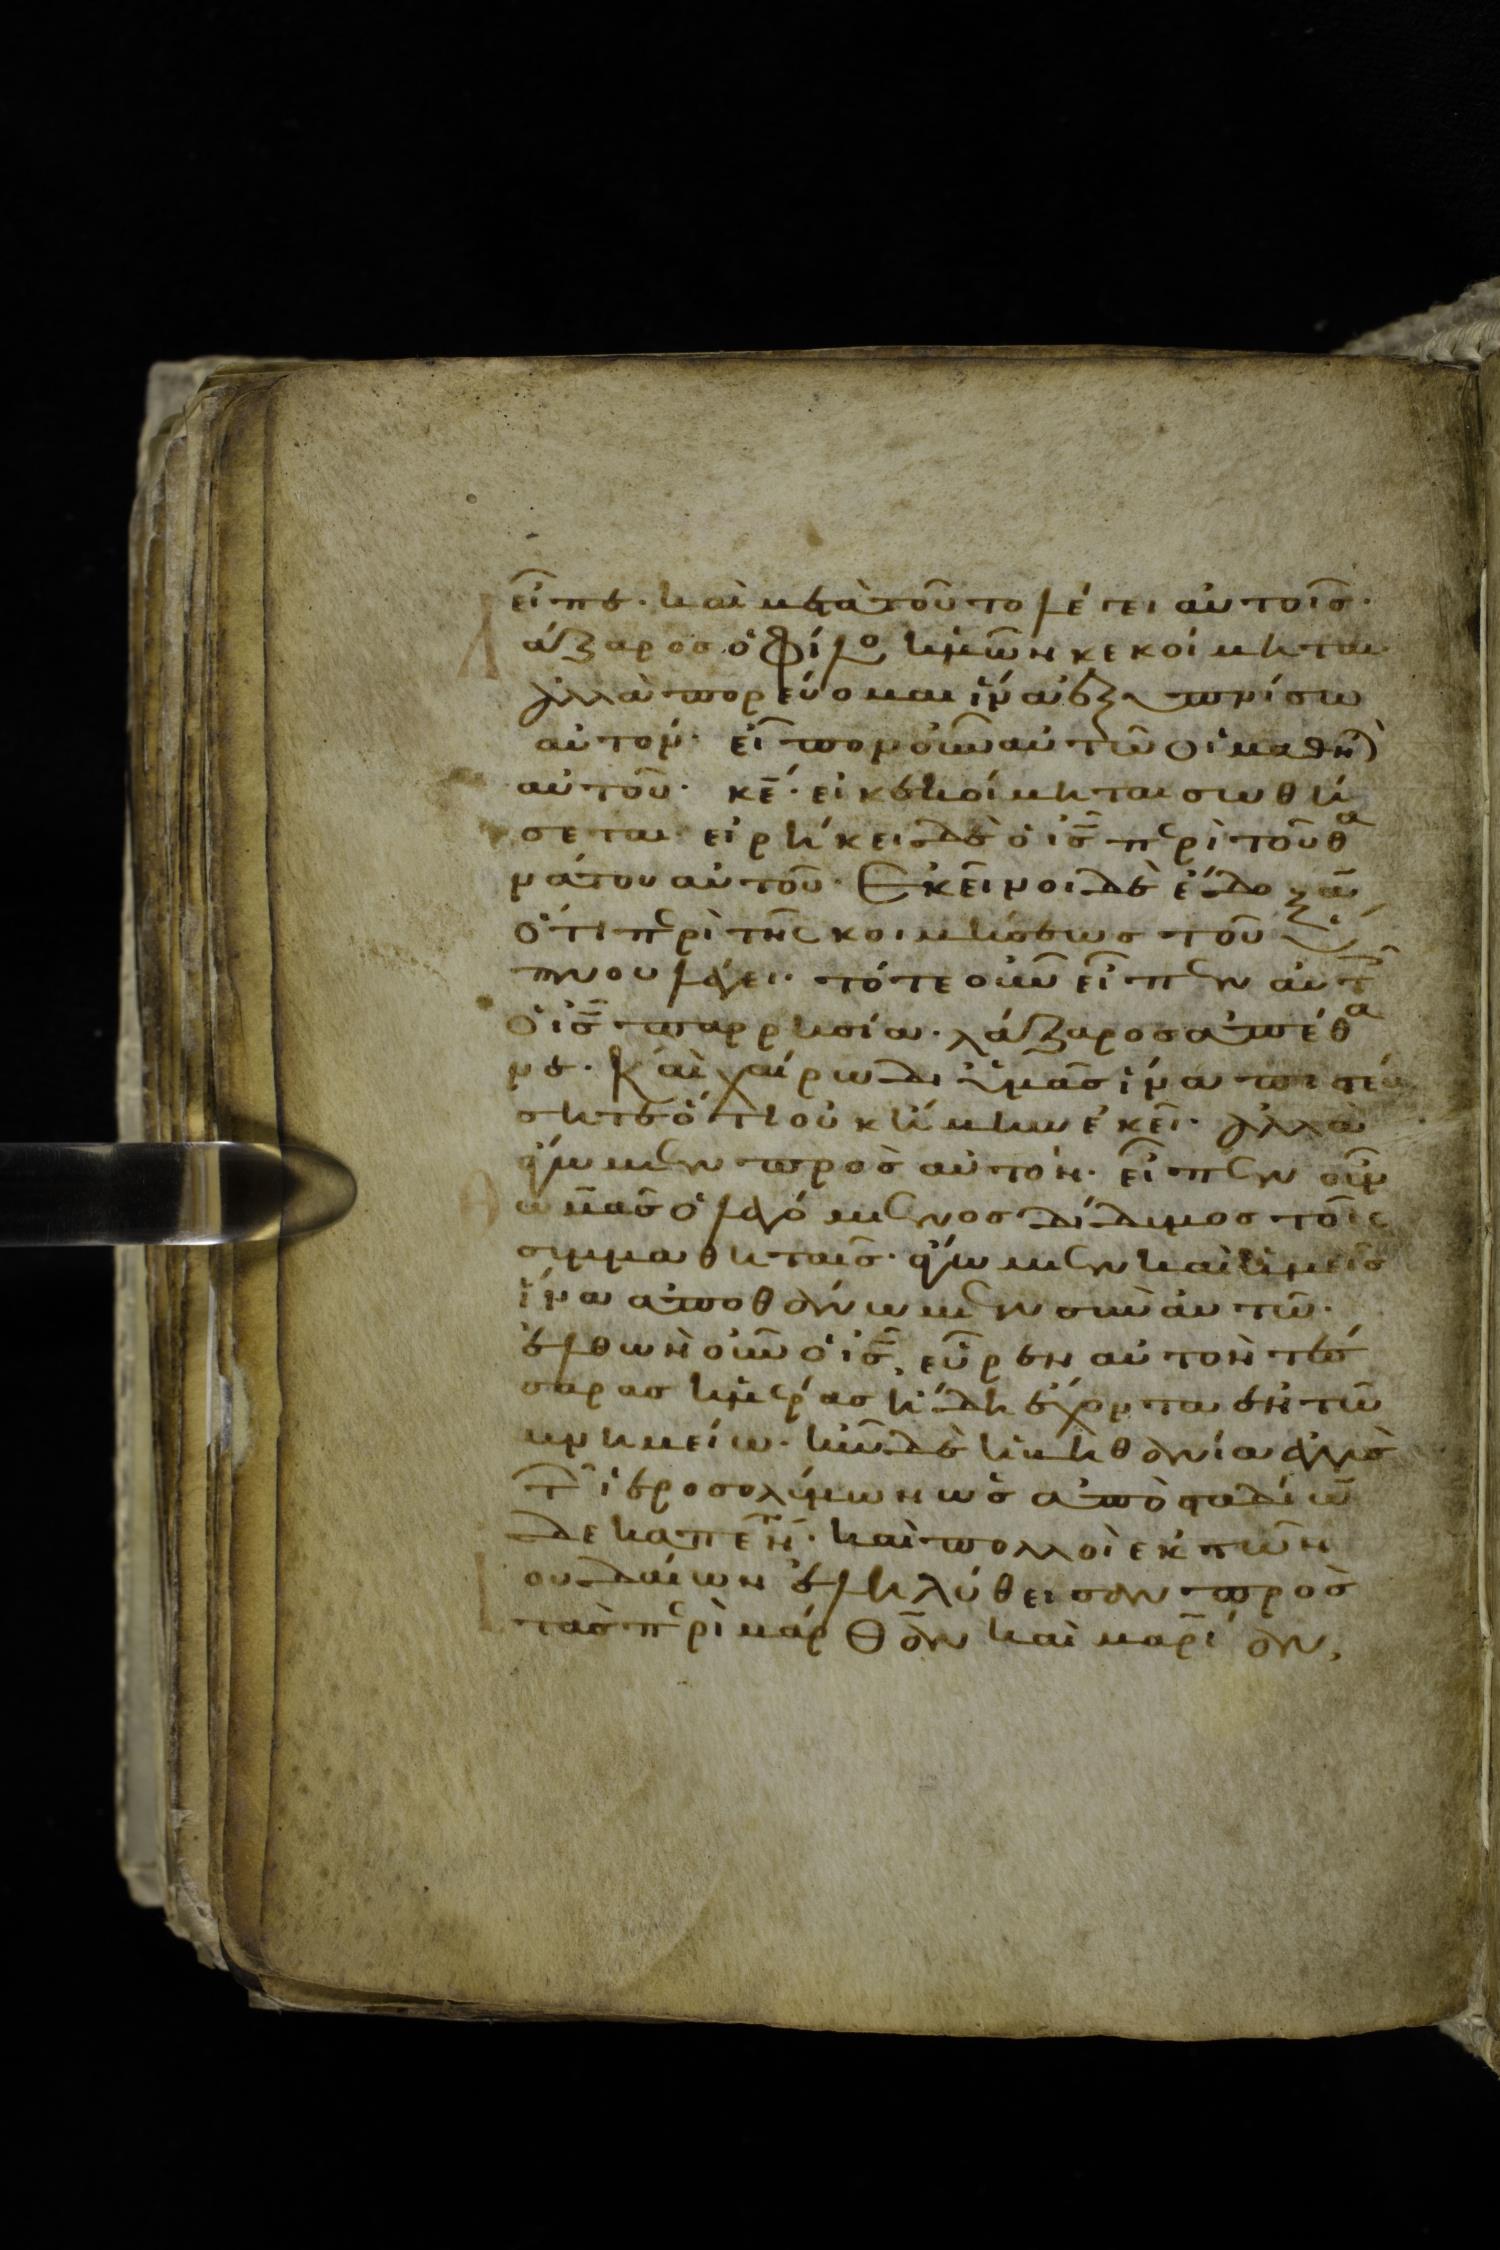 εἶπε· καὶ μετὰ τοῦτο λέγει αὐτοῖσ·
Λάζαροσ ὁ φίλο ἡμῶν κεκοίμηται
ἀλλὰ πορεύομαι ἵνα ἐξυπνίσω
αὐτόν· εἶπον οὖν αὐτῶ οἱ μαθη)
αὐτοῦ· κε̄· εἰ κεκοίμηται σωθή
σεται· εἰρήκει δὲ ὁ ισ̄ περὶ τοῦ θα
νάτου αὐτοῦ· Ἐκεῖνοι δὲ ἔδοξαν
ὅτι περὶ τῆς κοιμήσεωσ τοῦ ὕ
πνου λέγει· τότε οὖν εἶπεν αὐτ
ὁ ισ̄ παρρησία· λάζαροσ ἀπέθα
νε· Καὶ χαίρω δι ὑμᾶσ ἵνα πιστεύ
σητε ὅτι οὐκ ἤμην ἐκεῖ· ἀλλὰ
ἄγωμεν προσ αὐτόν· εἶπεν οὖν
Θωμᾶσ ὁ λεγόμενοσ δίδιμοσ τοῖς
συμμαθηταῖσ· ἄγωμεν καὶ ἡμεῖσ
ἵνα ἀποθάνωμεν σὺν αὐτῶ·
ἐλθὼν οὖν ὁ ισ̄, εὗρεν αὐτὸν τέσ
σαρασ ἡμέρασ ἤδη ἔχοντα ἐν τῶ
μνημείω· ἦν δὲ ἡ βηθανία ἐγγὺσ
τῶν ἱεροσολύμων ὡσ ἀπὸ σταδίων
δεκαπέν· καὶ πολλοὶ ἐκ τῶν
Ιουδαίων ἐληλύθεισαν πρὸσ
τὰσ περὶ μάρθαν καὶ μαρίαν,